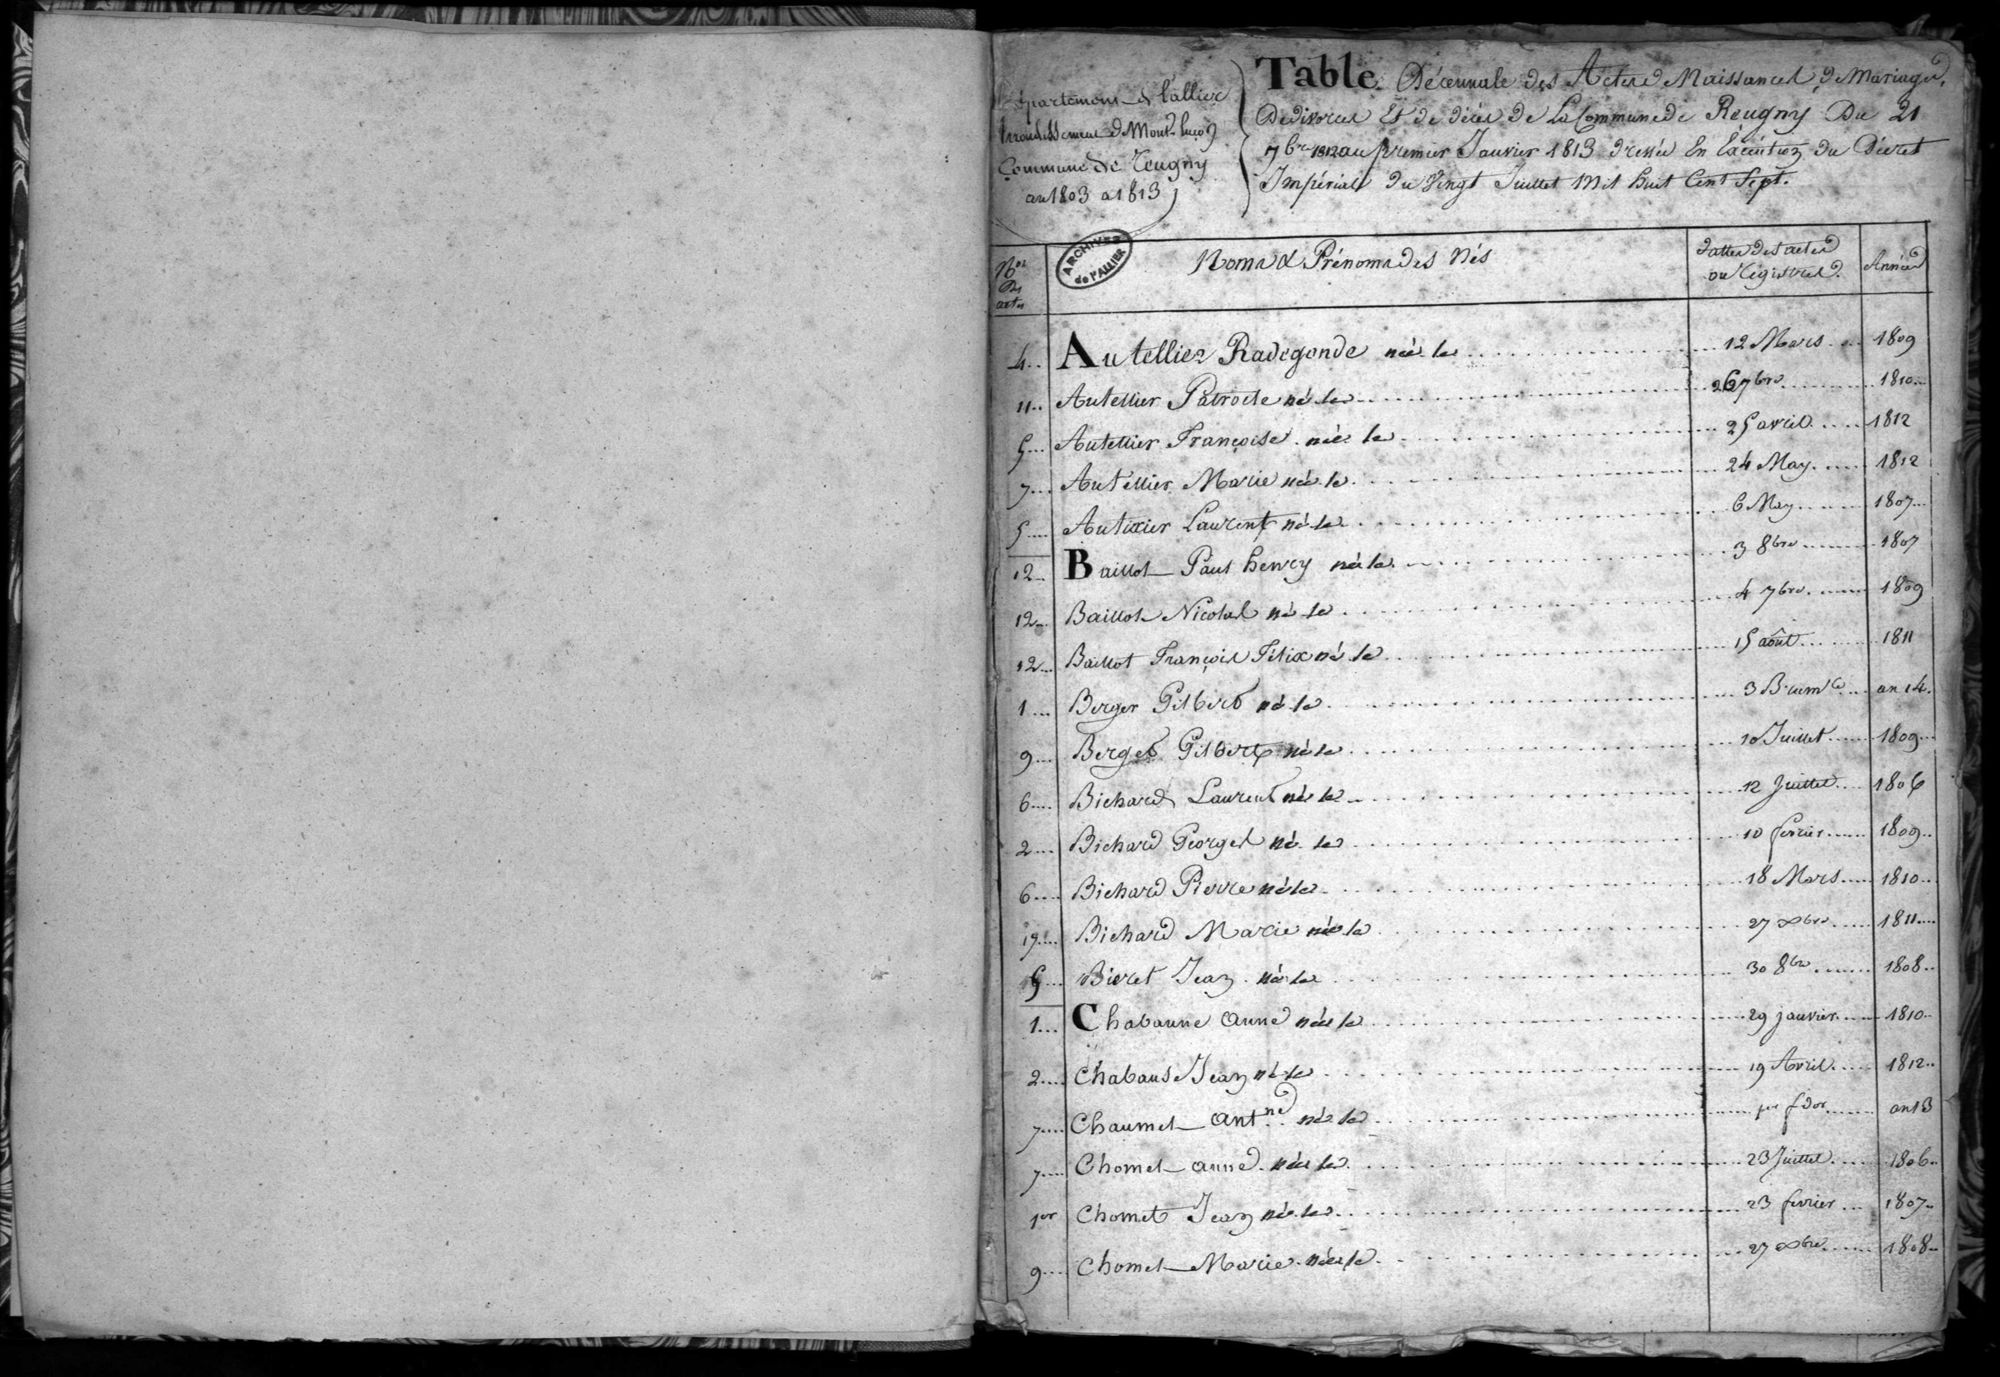 Département de l'allier
Arrondissement de Mont-luçon
Commune de Reugny
an 1803 a 1813
Table Décennale des Actes de Naissances, de Mariages,
De divorces Et de décès de La Commune de Reugny Du 21
7bre 1802 au premier Janvier 1813 dressée En Exécution du Décret
Impérial du Vingt Juillet Mil huit Cent Sept.
ARCHIVES de l'ALLIER
Nos des actes | Noms & Prénoms des Nés | dattes des actes ou Régistres | Années
4 Autellier Radegonde née le 12 Mars 1809
11 Autellier Patrocle né le 26 7bre 1810
5 Autellier Françoise née le 25 avril 1812
7 Autellier Marie née le 24 May 1812
5 Autixier Laurent né le 6 May 1807
12 Baillot Paul henry né le 3 8bre 1807
12 Baillot Nicolas né le 4 7bre 1809
12 Baillot François Félix né le 15 août 1811
1 Berger Gilbert né le 3 Brume an 14
9 Berger Gilbert né le 10 Juillet 1809
6 Bichard Laurent né le 12 Juillet 1806
2 Bichard Georges né le 10 fevrier 1809
6 Bichard Pierre né le 18 Mars 1810
17 Bichard Marie née le 27 xbre 1811
5 Bieret Jean né le 30 8bre 1808
1 Chabanne anne née le 29 janvier 1810
2 Chabans Jean né le 19 Avril 1812
7 Chaumet antne né le 1er fdor an 13
7 Chomet anne née le 23 Juillet 1806
1er Chomet Jean né le 23 fevrier 1807
9 Chomet Marie née le 27 xbre 1808